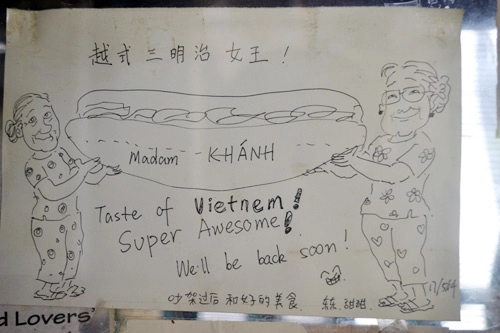 越式三明治女王!
Madam KHÁNH
Taste of Vietnem!
Super Awesome!
We'll be back soon!
吵架过后和好的美食
甜甜
17/5/4
d Lovers'